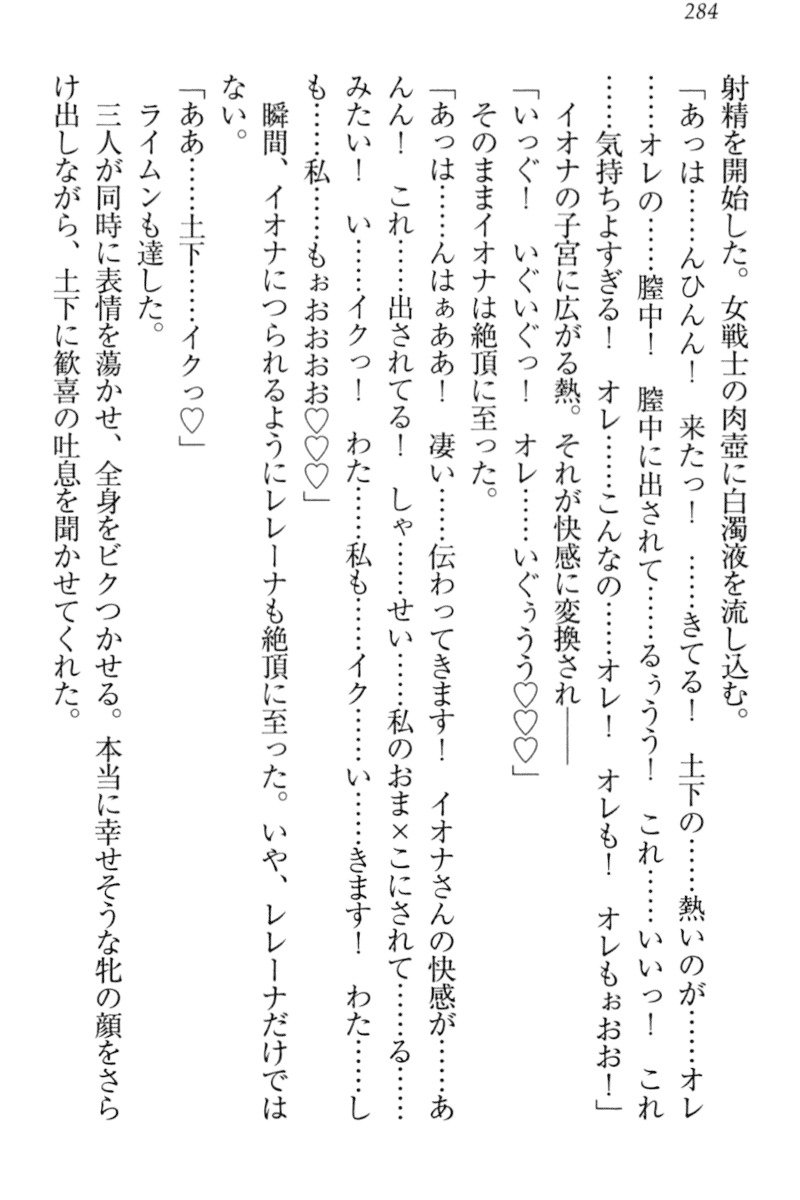 284
射精を開始した。女戦士の肉壺に白濁液を流し込む。
「あっは……んひんん！　来たっ！　……きてる！　土下の……熱いのが……オレ
……オレの……膣中！　膣中に出されて……るぅうう！　これ……いいっ！　これ
……気持ちよすぎる！　オレ……こんなの……オレ！　オレも！　オレもぉおお！」
　イオナの子宮に広がる熱。それが快感に変換され――
「いっぐ！　いぐいぐっ！　オレ……いぐぅうう♡♡♡」
　そのままイオナは絶頂に至った。
「あっは……んはぁああ！　凄い……伝わってきます！　イオナさんの快感が……あ
んん！　これ……出されてる！　しゃ……せい……私のおま×こにされて……る……
みたい！　い……イクっ！　わた……私も……イク……い……きます！　わた……し
も……私……もぉおおおお♡♡♡」
　瞬間、イオナにつられるようにレレーナも絶頂に至った。いや、レレーナだけでは
ない。
「ああ……土下……イクっ♡」
　ライムンも達した。
　三人が同時に表情を蕩かせ、全身をビクつかせる。本当に幸せそうな牝の顔をさら
け出しながら、土下に歓喜の吐息を聞かせてくれた。